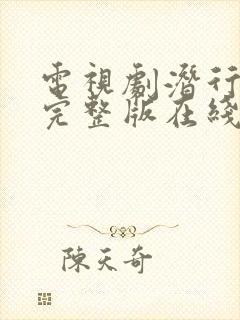 電視劇潛行
完整版在綫
陳天奇